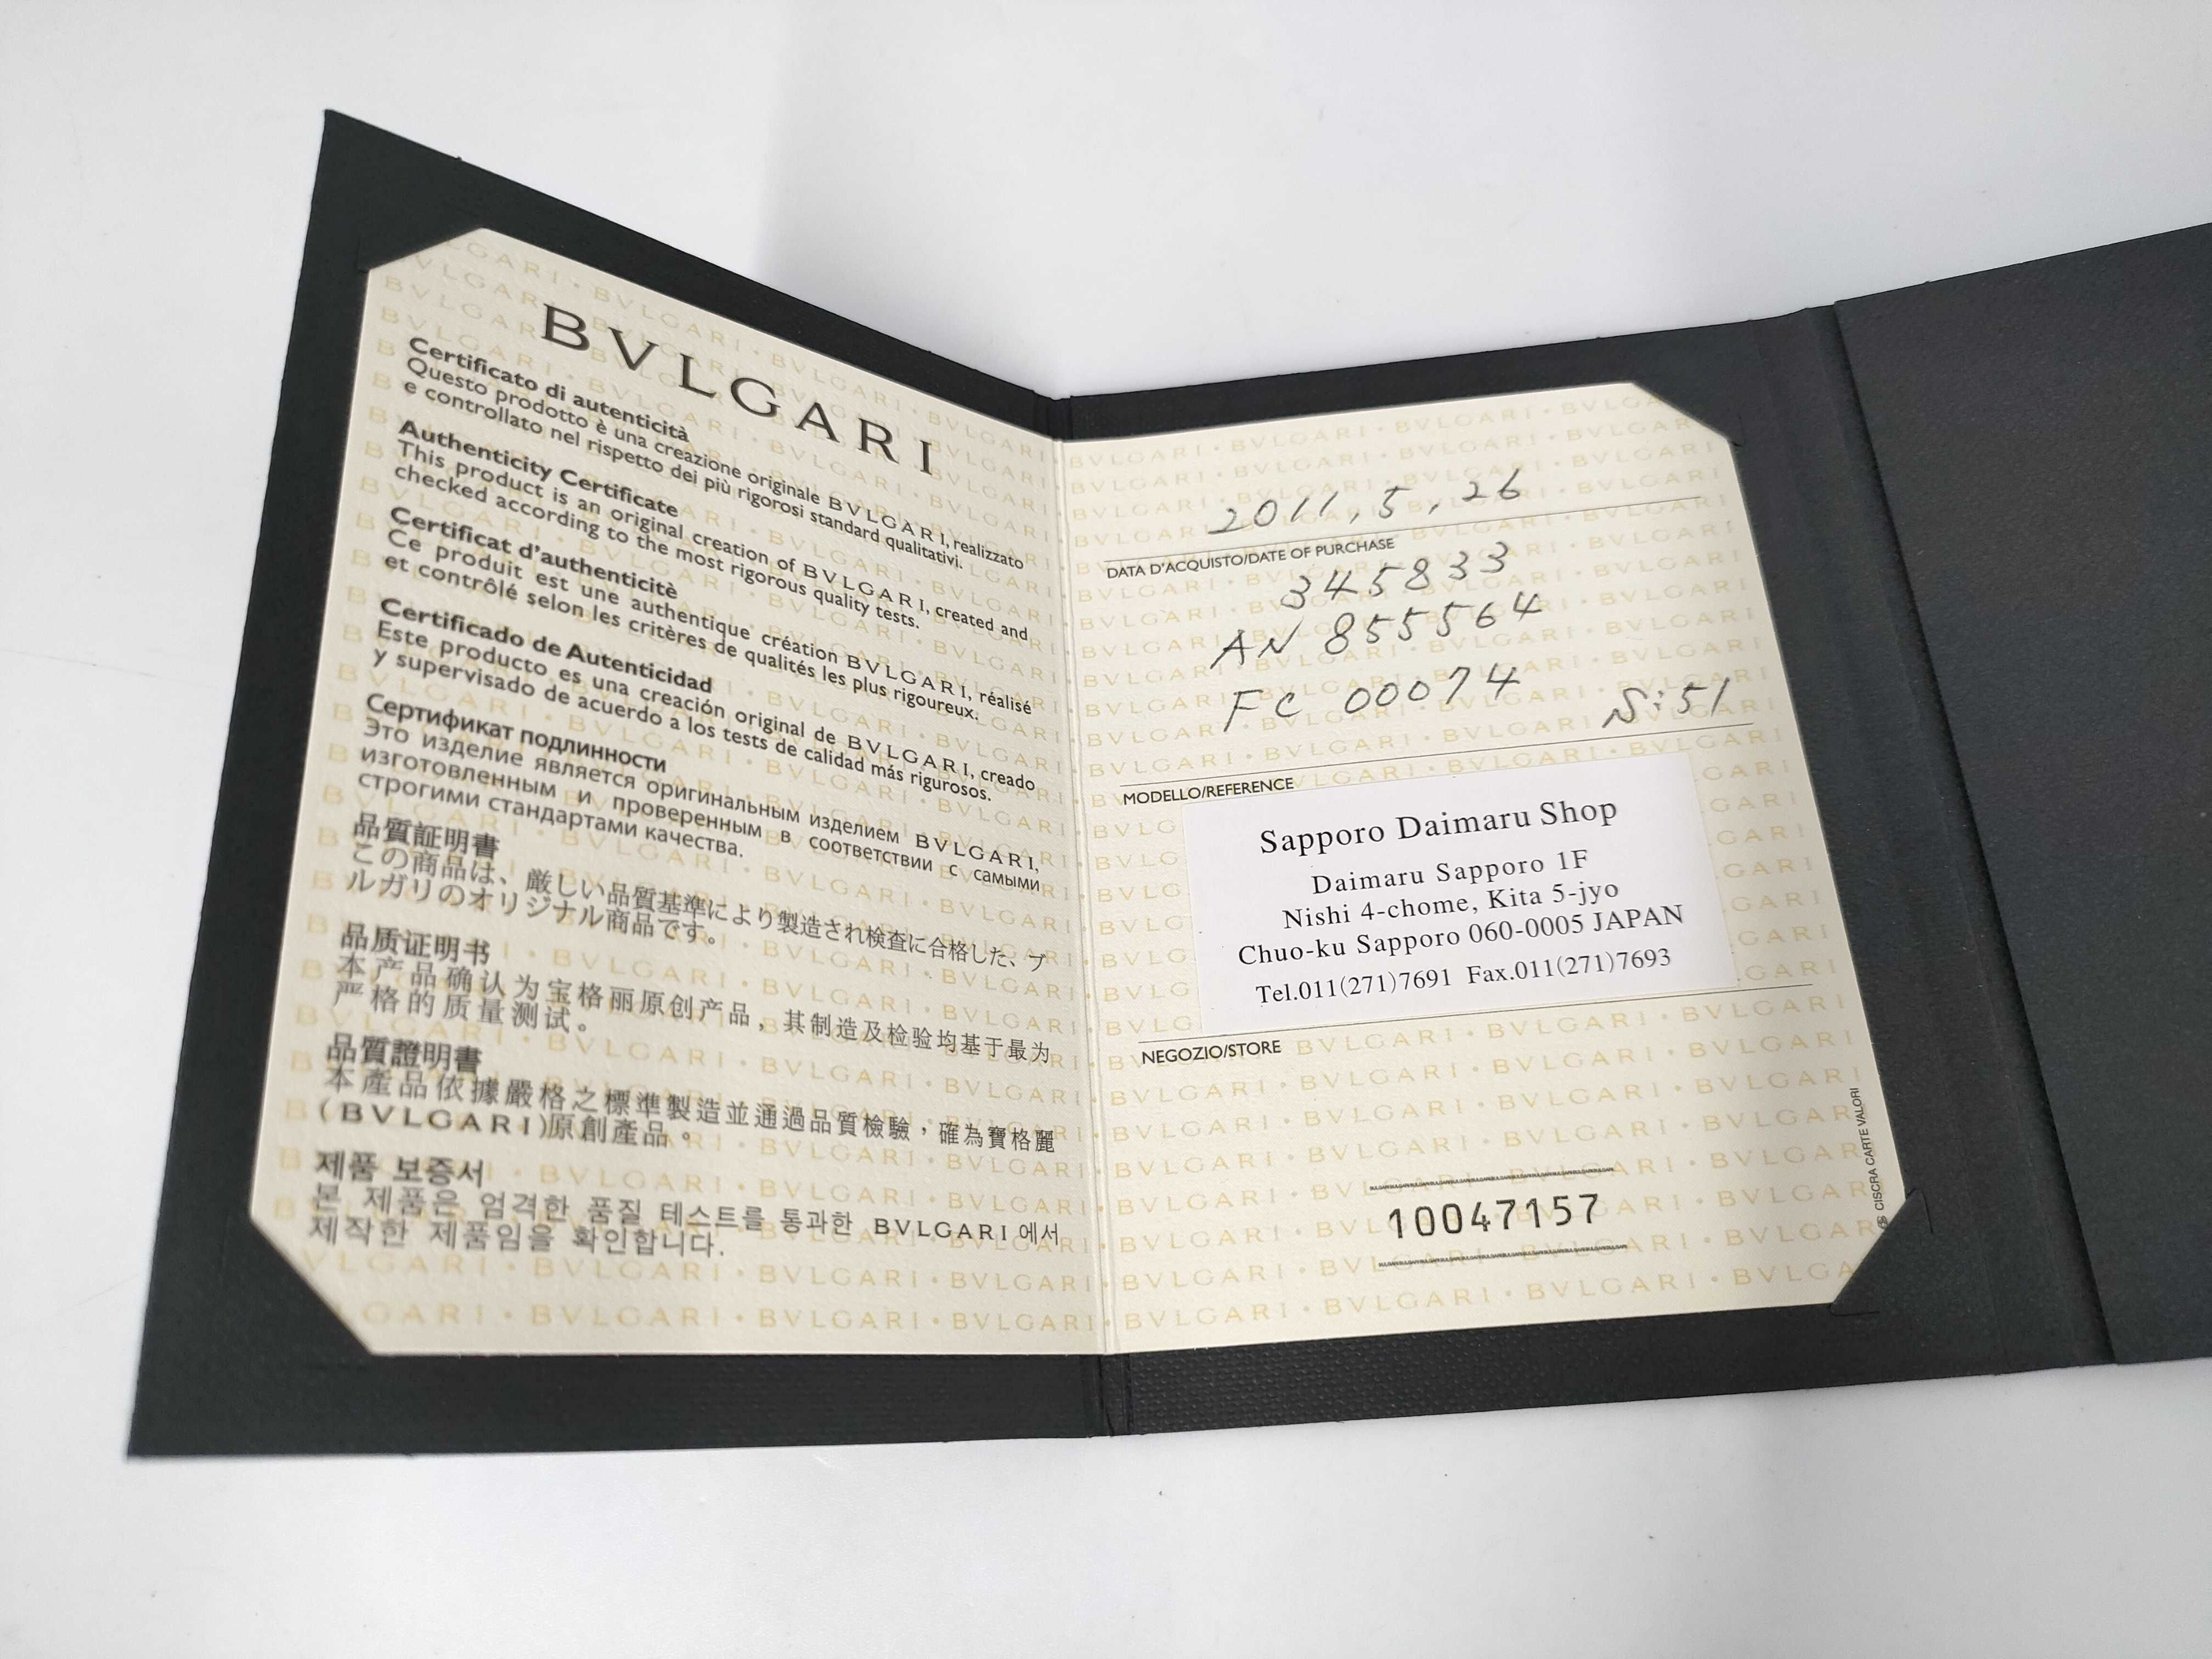 BVLGARI
Certificato di autenticità
Questo prodotto è una creazione originale BVLGARI, realizzato
e controllato nel rispetto dei più rigorosi standard qualitativi.
Authenticity Certificate
This product is an original creation of BVLGARI, created and
checked according to the most rigorous quality tests.
Certificat d'authenticitè
Ce produit est une authentique création BVLGARI, réalisé
et contrôlé selon les critères de qualités les plus rigoureux.
Certificado de Autenticidad
Este producto es una creación original de BVLGARI, creado
y supervisado de acuerdo a los tests de calidad más rigurosos.
Сертификат подлинности
Это изделие является оригинальным изделием BVLGARI,
изготовленным и проверенным в соответствии с самыми
строгими стандартами качества.
品質証明書
この商品は、厳しい品質基準により製造され検査に合格した、ブ
ルガリのオリジナル商品です。
品质证明书
本产品确认为宝格丽原创产品，其制造及检验均基于最为
严格的质量测试。
品質證明書
本產品依據嚴格之標準製造並通過品質檢驗，確為寶格麗
(BVLGARI)原創產品。
제품 보증서
본 제품은 엄격한 품질 테스트를 통과한 BVLGARI 에서
제작한 제품임을 확인합니다.
2011, 5, 26
DATA D'ACQUISTO/DATE OF PURCHASE
345833
AN 855564
FC 00074 S:51
MODELLO/REFERENCE
Sapporo Daimaru Shop
Daimaru Sapporo 1F
Nishi 4-chome, Kita 5-jyo
Chuo-ku Sapporo 060-0005 JAPAN
Tel.011(271)7691 Fax.011(271)7693
NEGOZIO/STORE
10047157
CISCRA CARTE VALORI